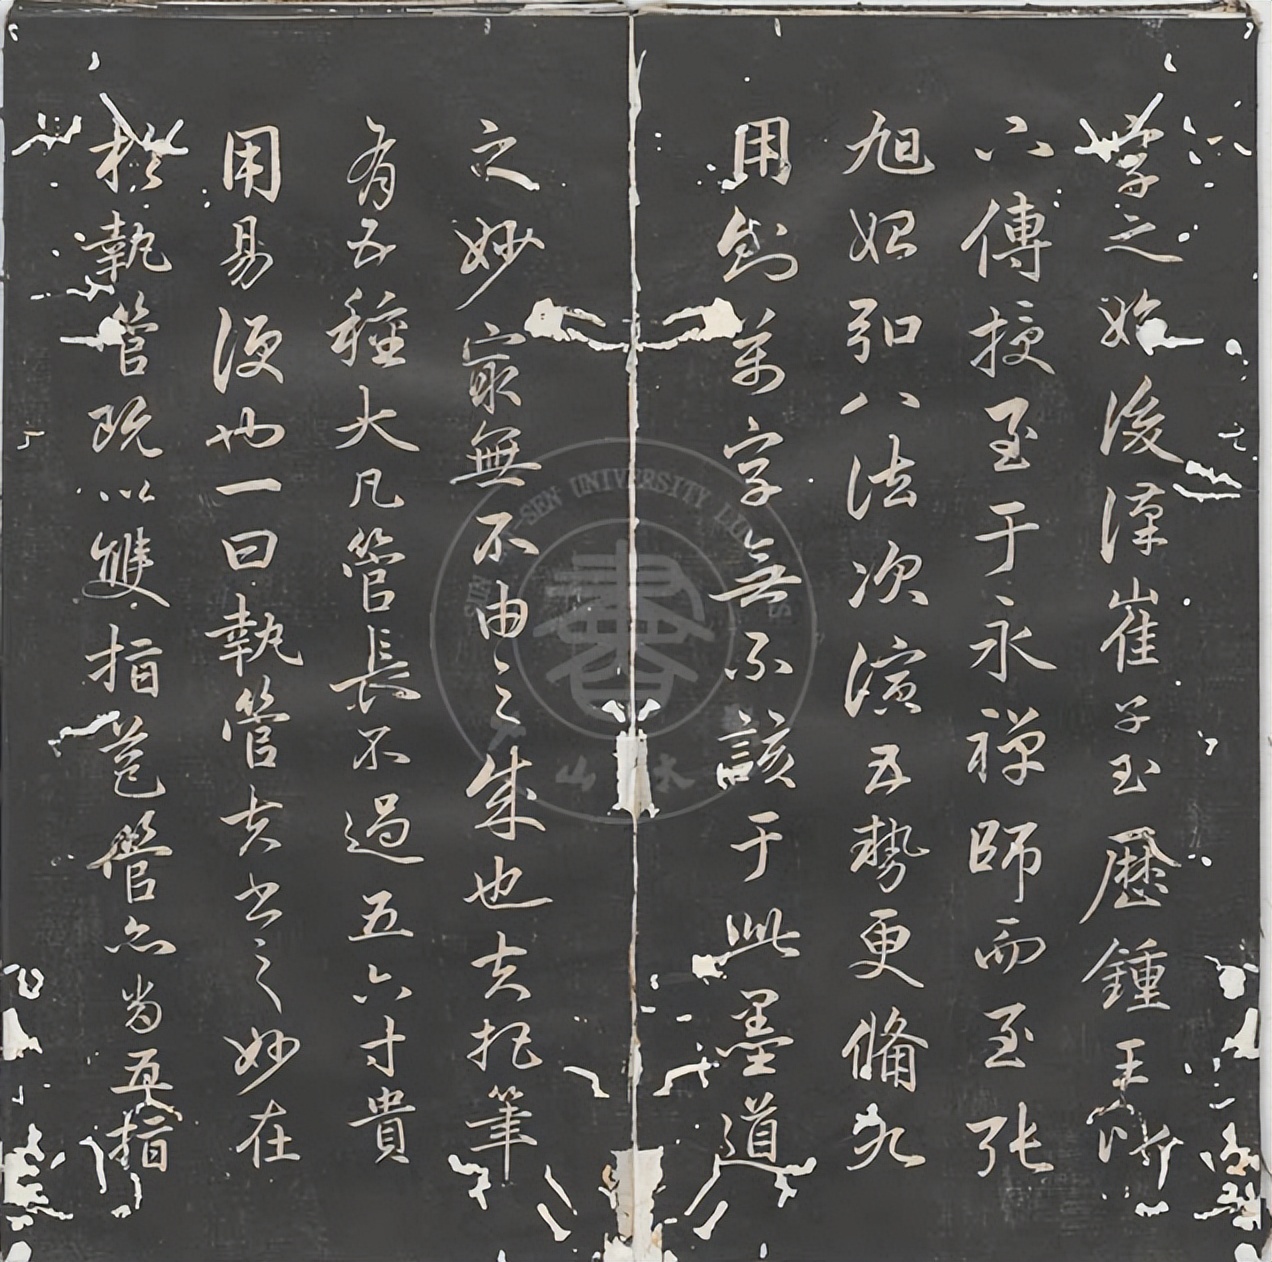 字之始後漢崔子玉歷鍾王以
下傳授至于永禪師而至張
旭始弘八法次演五勢更備九
用則萬字無不該于此墨道
之妙最無不由之成也夫把筆
有五種大凡管長不過五六寸貴
用易便也一曰執管夫書之妙在
於執管既以雙指苞管亦當五指
SEN UNIVERSITY